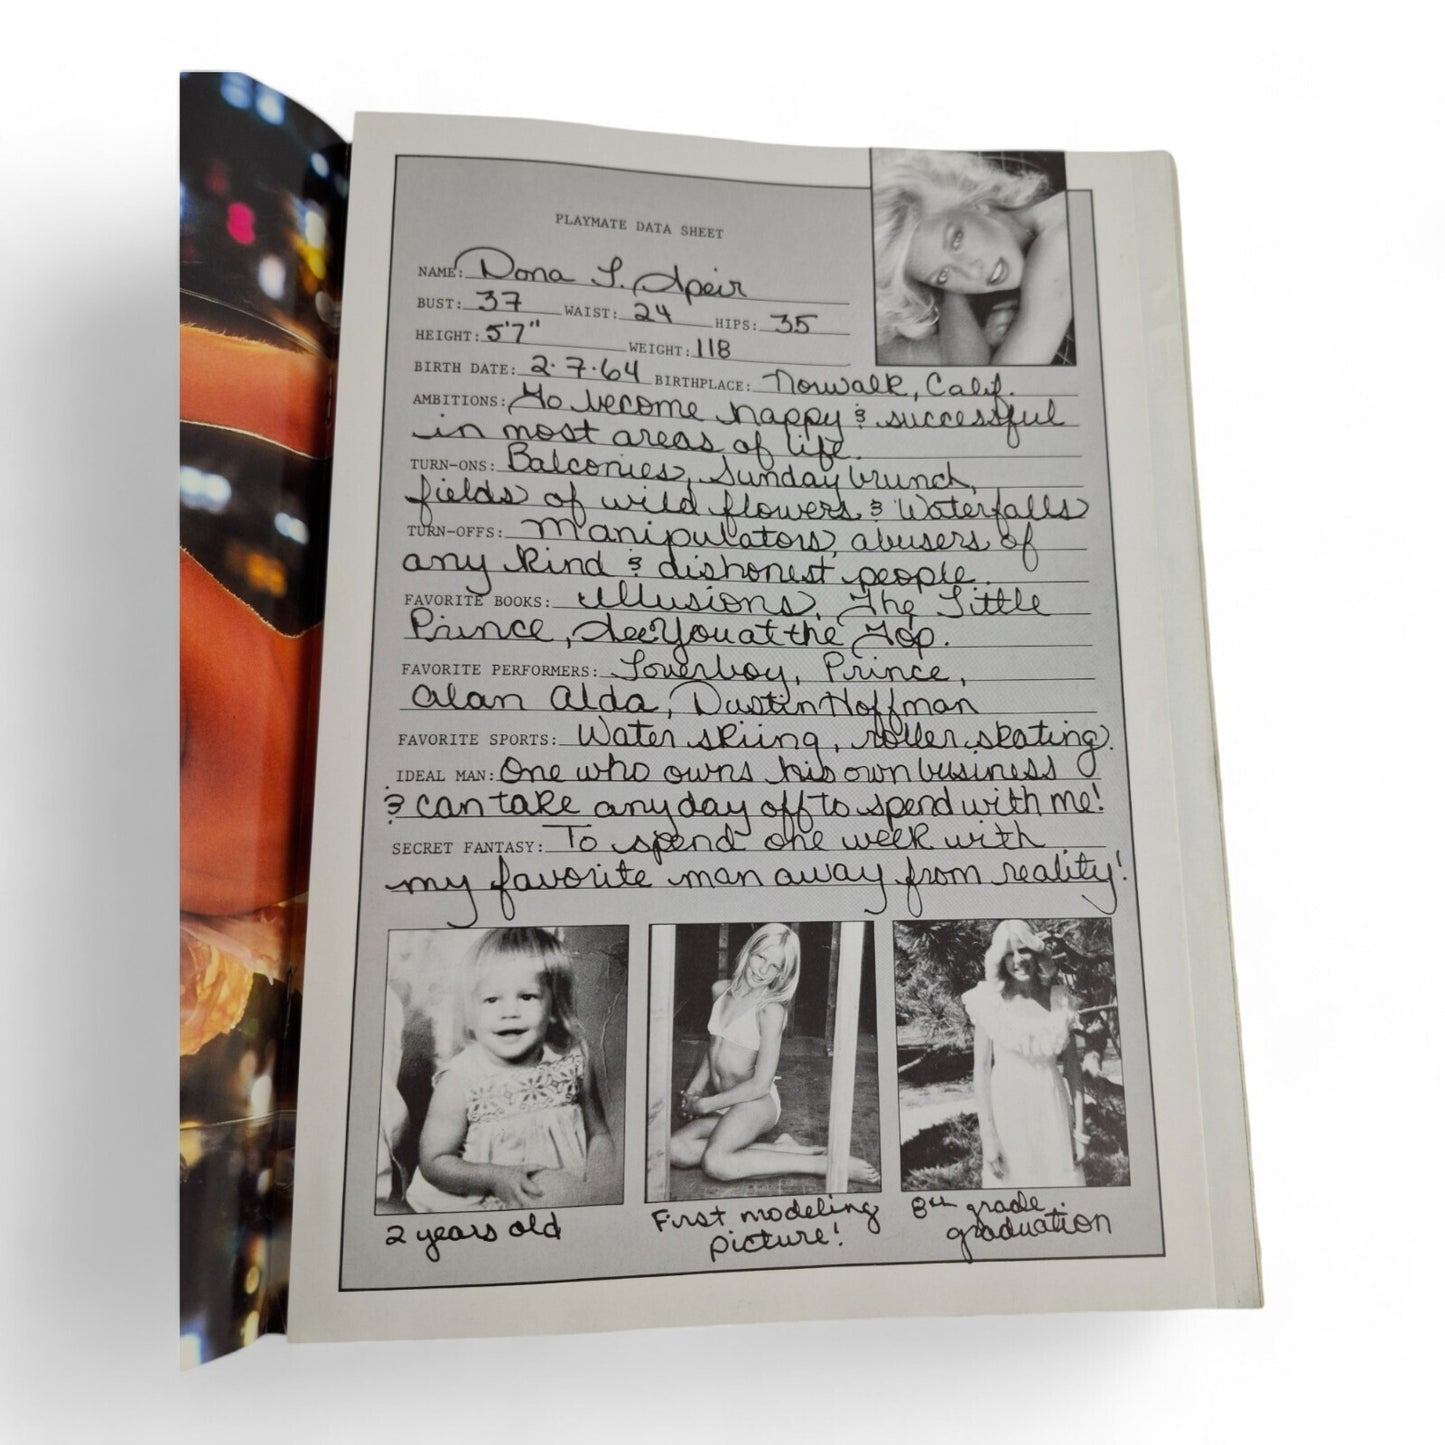 PLAYMATE DATA SHEET
NAME: Dona L. Speir
BUST: 37 WAIST: 24 HIPS: 35
HEIGHT: 5'7" WEIGHT: 118
BIRTH DATE: 2·7·64 BIRTHPLACE: Norwalk, Calif.
AMBITIONS: To become happy & successful
in most areas of life.
TURN-ONS: Balconies, Sunday brunch,
fields of wild flowers & Waterfalls
TURN-OFFS: Manipulators, abusers of
any kind & dishonest people.
FAVORITE BOOKS: Illusions, The Little
Prince, See You at the Top.
FAVORITE PERFORMERS: Loverboy, Prince,
Alan Alda, Dustin Hoffman
FAVORITE SPORTS: Water skiing, roller skating.
IDEAL MAN: One who owns his own business
& can take any day off to spend with me!
SECRET FANTASY: To spend one week with
my favorite man away from reality!
2 years old
First modeling
picture!
8th grade
graduation